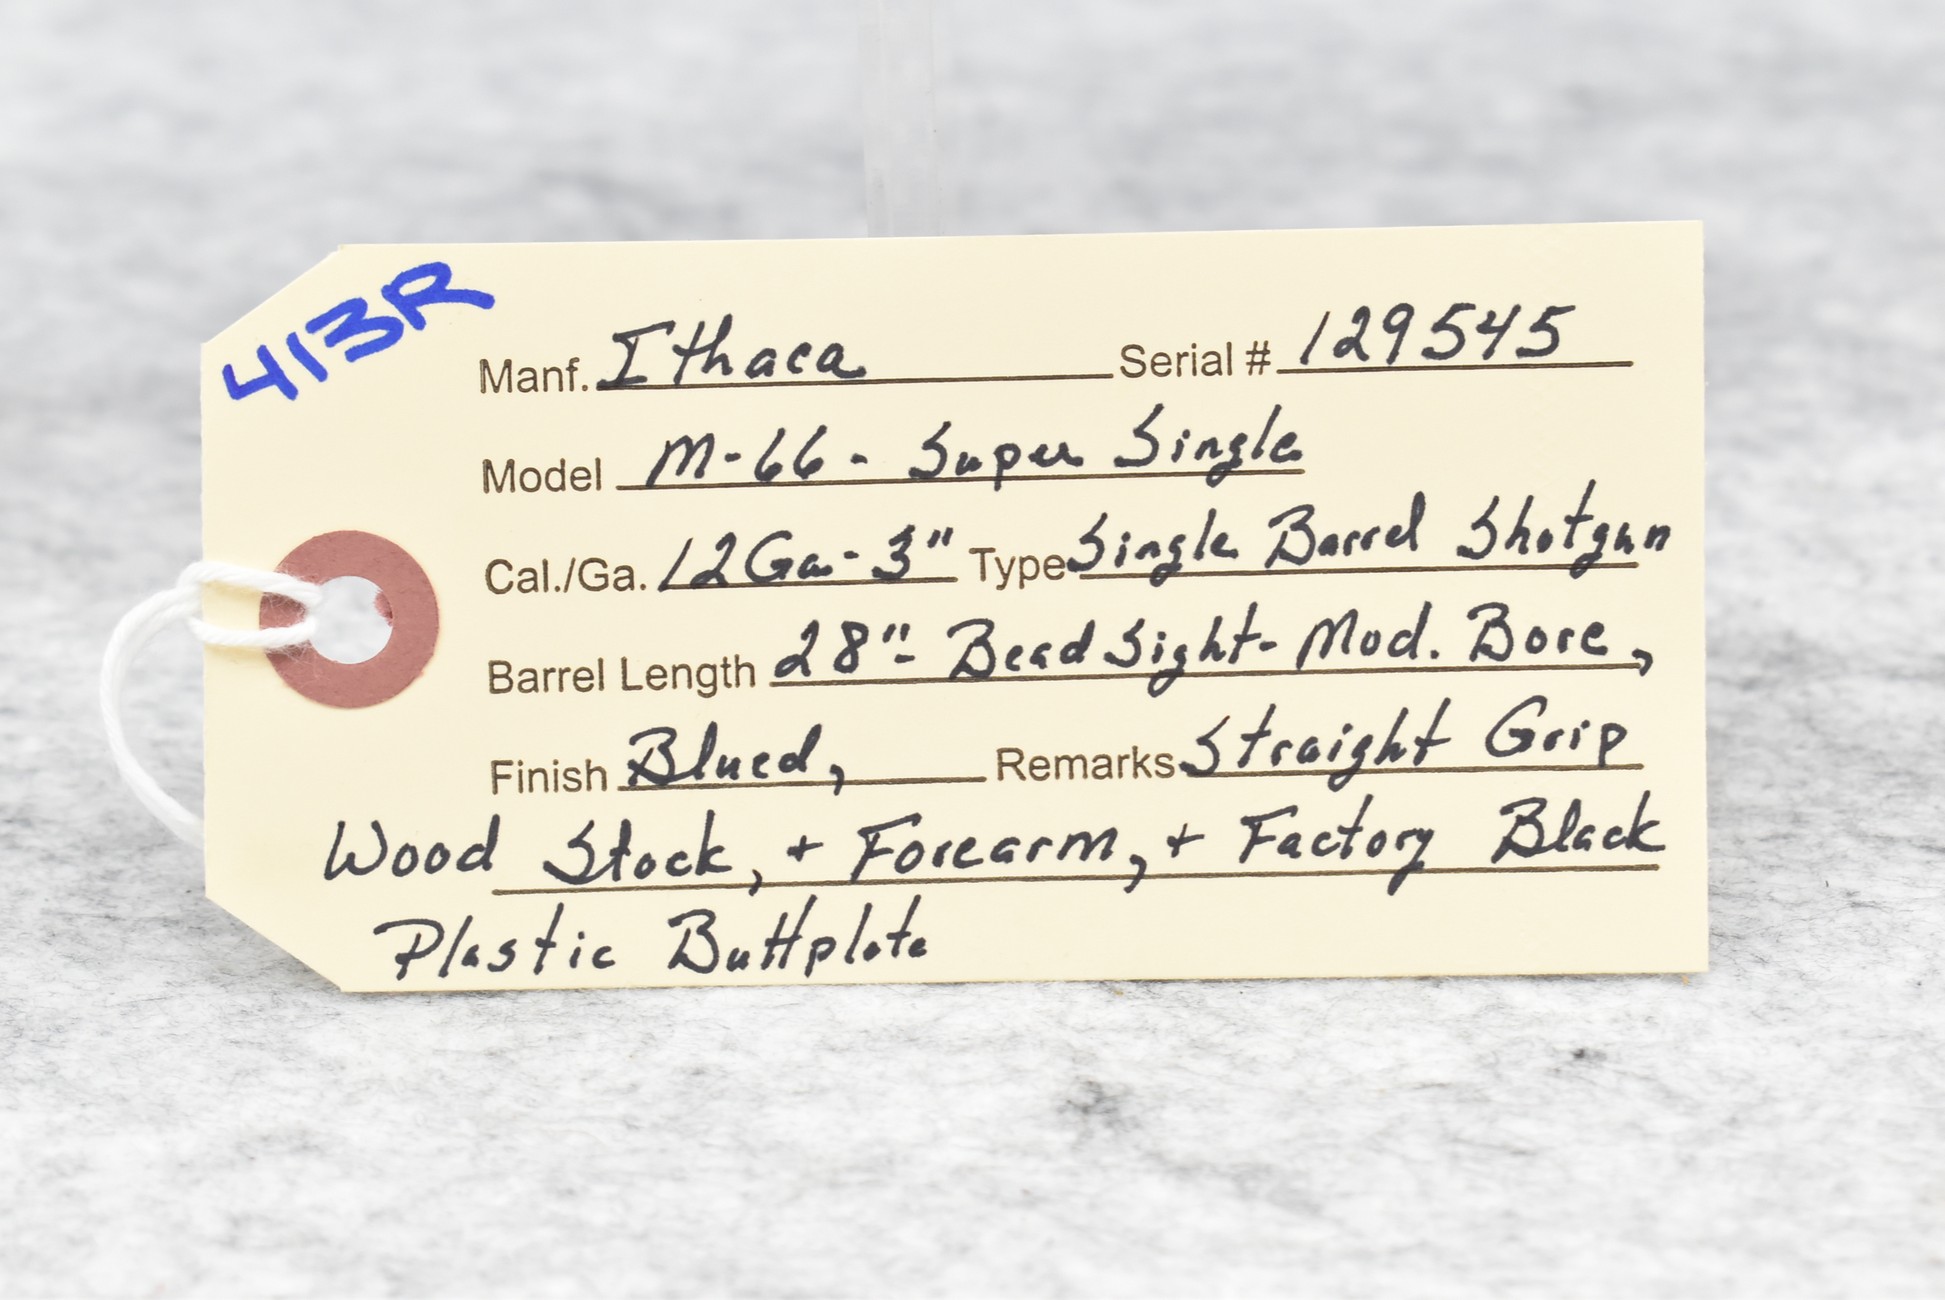 413R
Manf. Ithaca Serial # 129545
Model M-66- Super Single
Cal./Ga. 12Ga-3" Type Single Barrel Shotgun
Barrel Length 28"- Bead Sight- Mod. Bore,
Finish Blued, Remarks Straight Grip
Wood Stock, + Forearm, + Factory Black
Plastic Buttplate